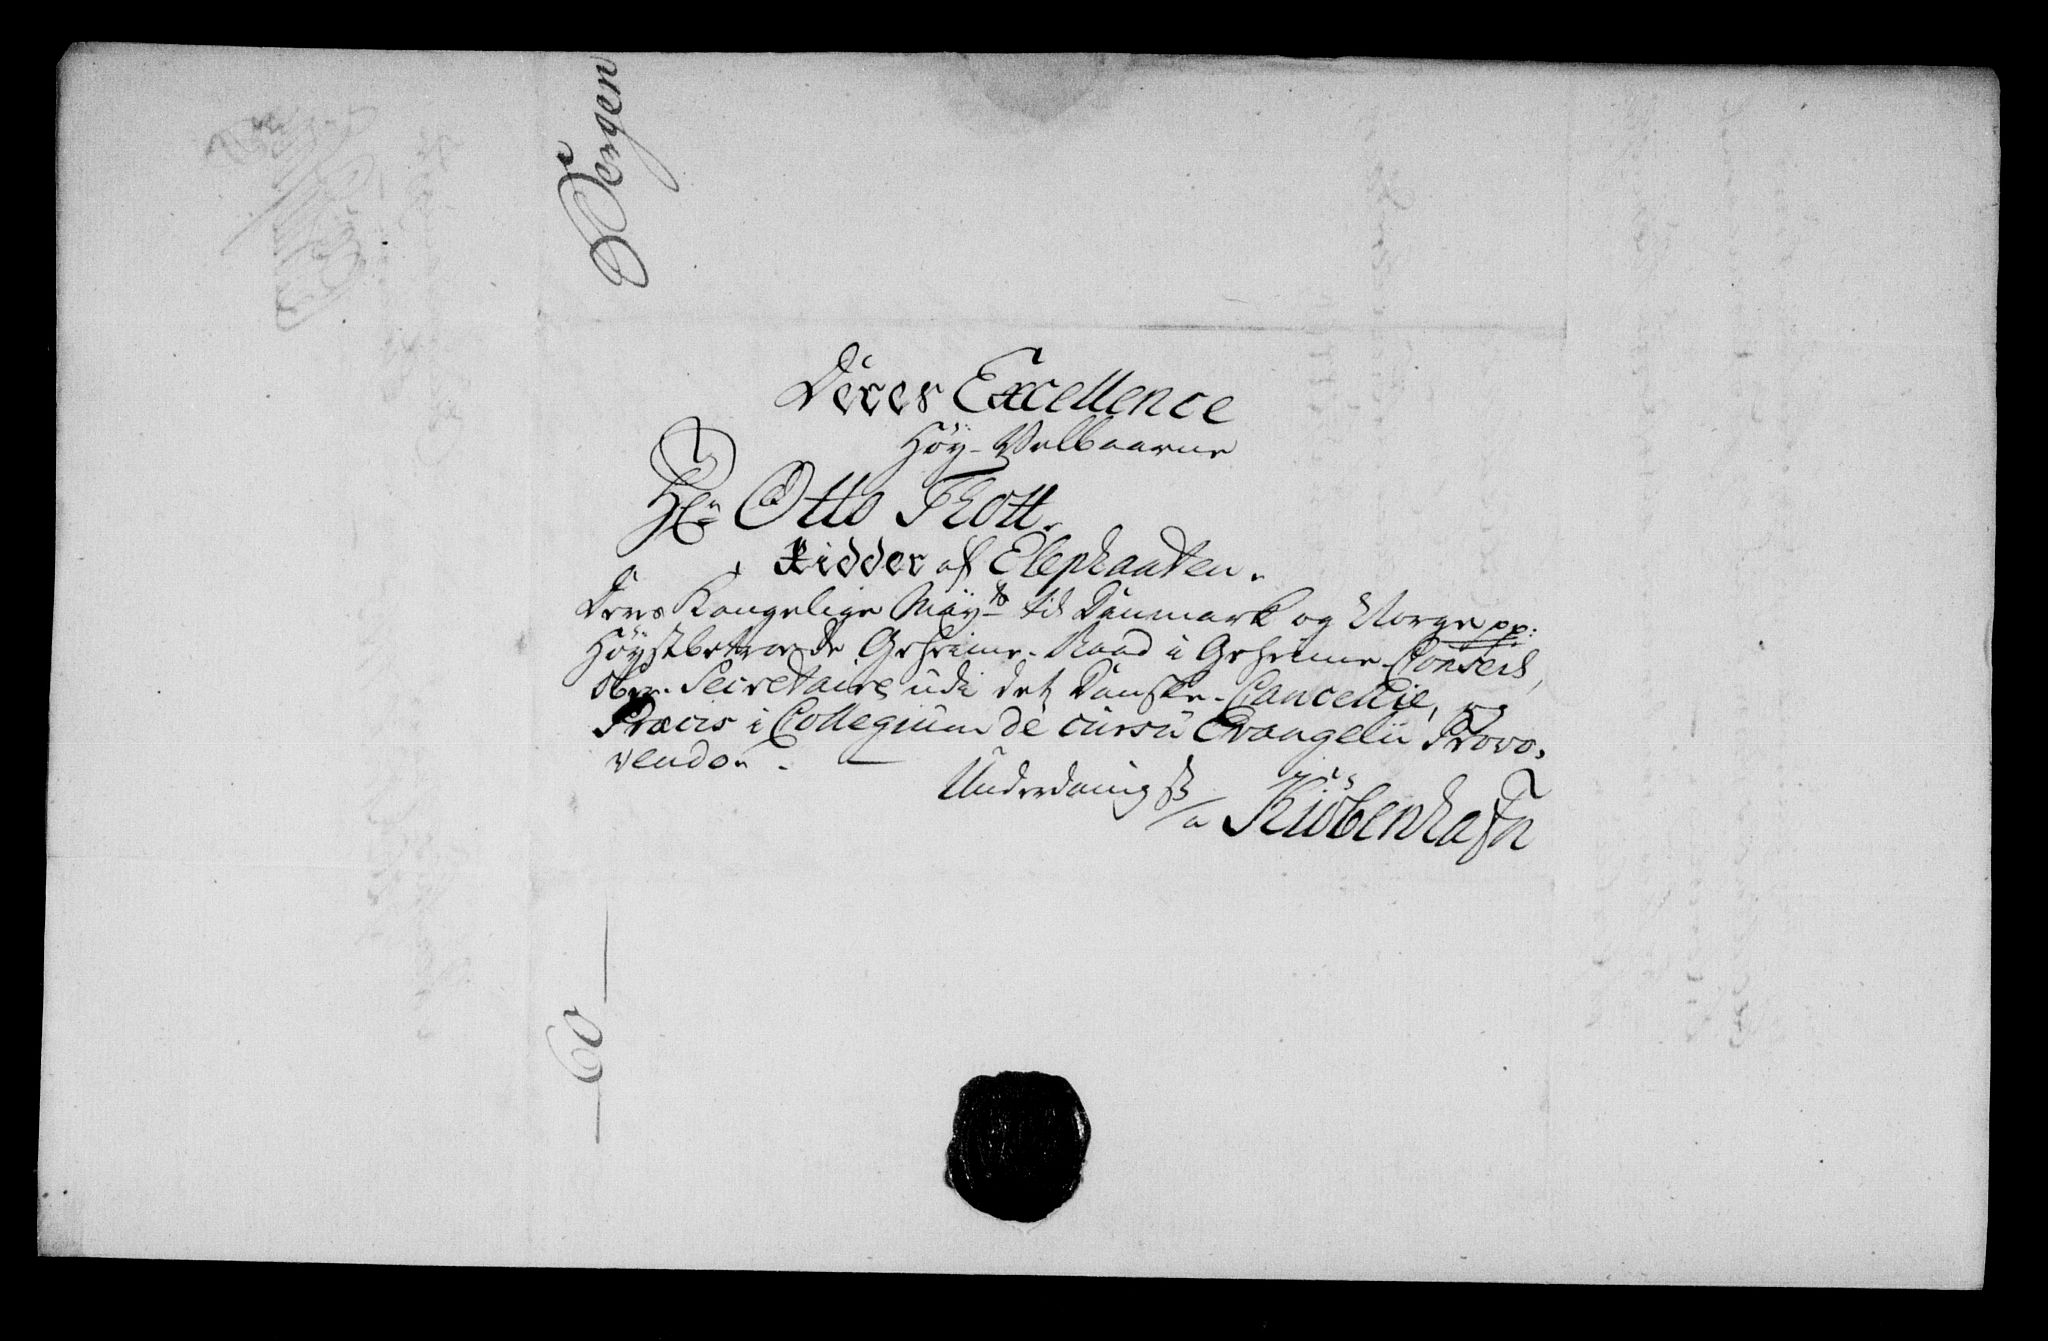 Bergen
Deres Excellence
Høy-Velbaarne
Hr Otto Thott.
Ridder af Elephanten.
Deres Kongelige Mayts til Danmark og Norge pp:
Høystbetroede Geheime-Raad i Geheime-Conseil,
Ober-Secretaire udi det Danske-Cancellie, og
Præcis i Collegium de cursu Evangelii Promo-
vendo.
Underdanigst
a Kiöbenhafn
60